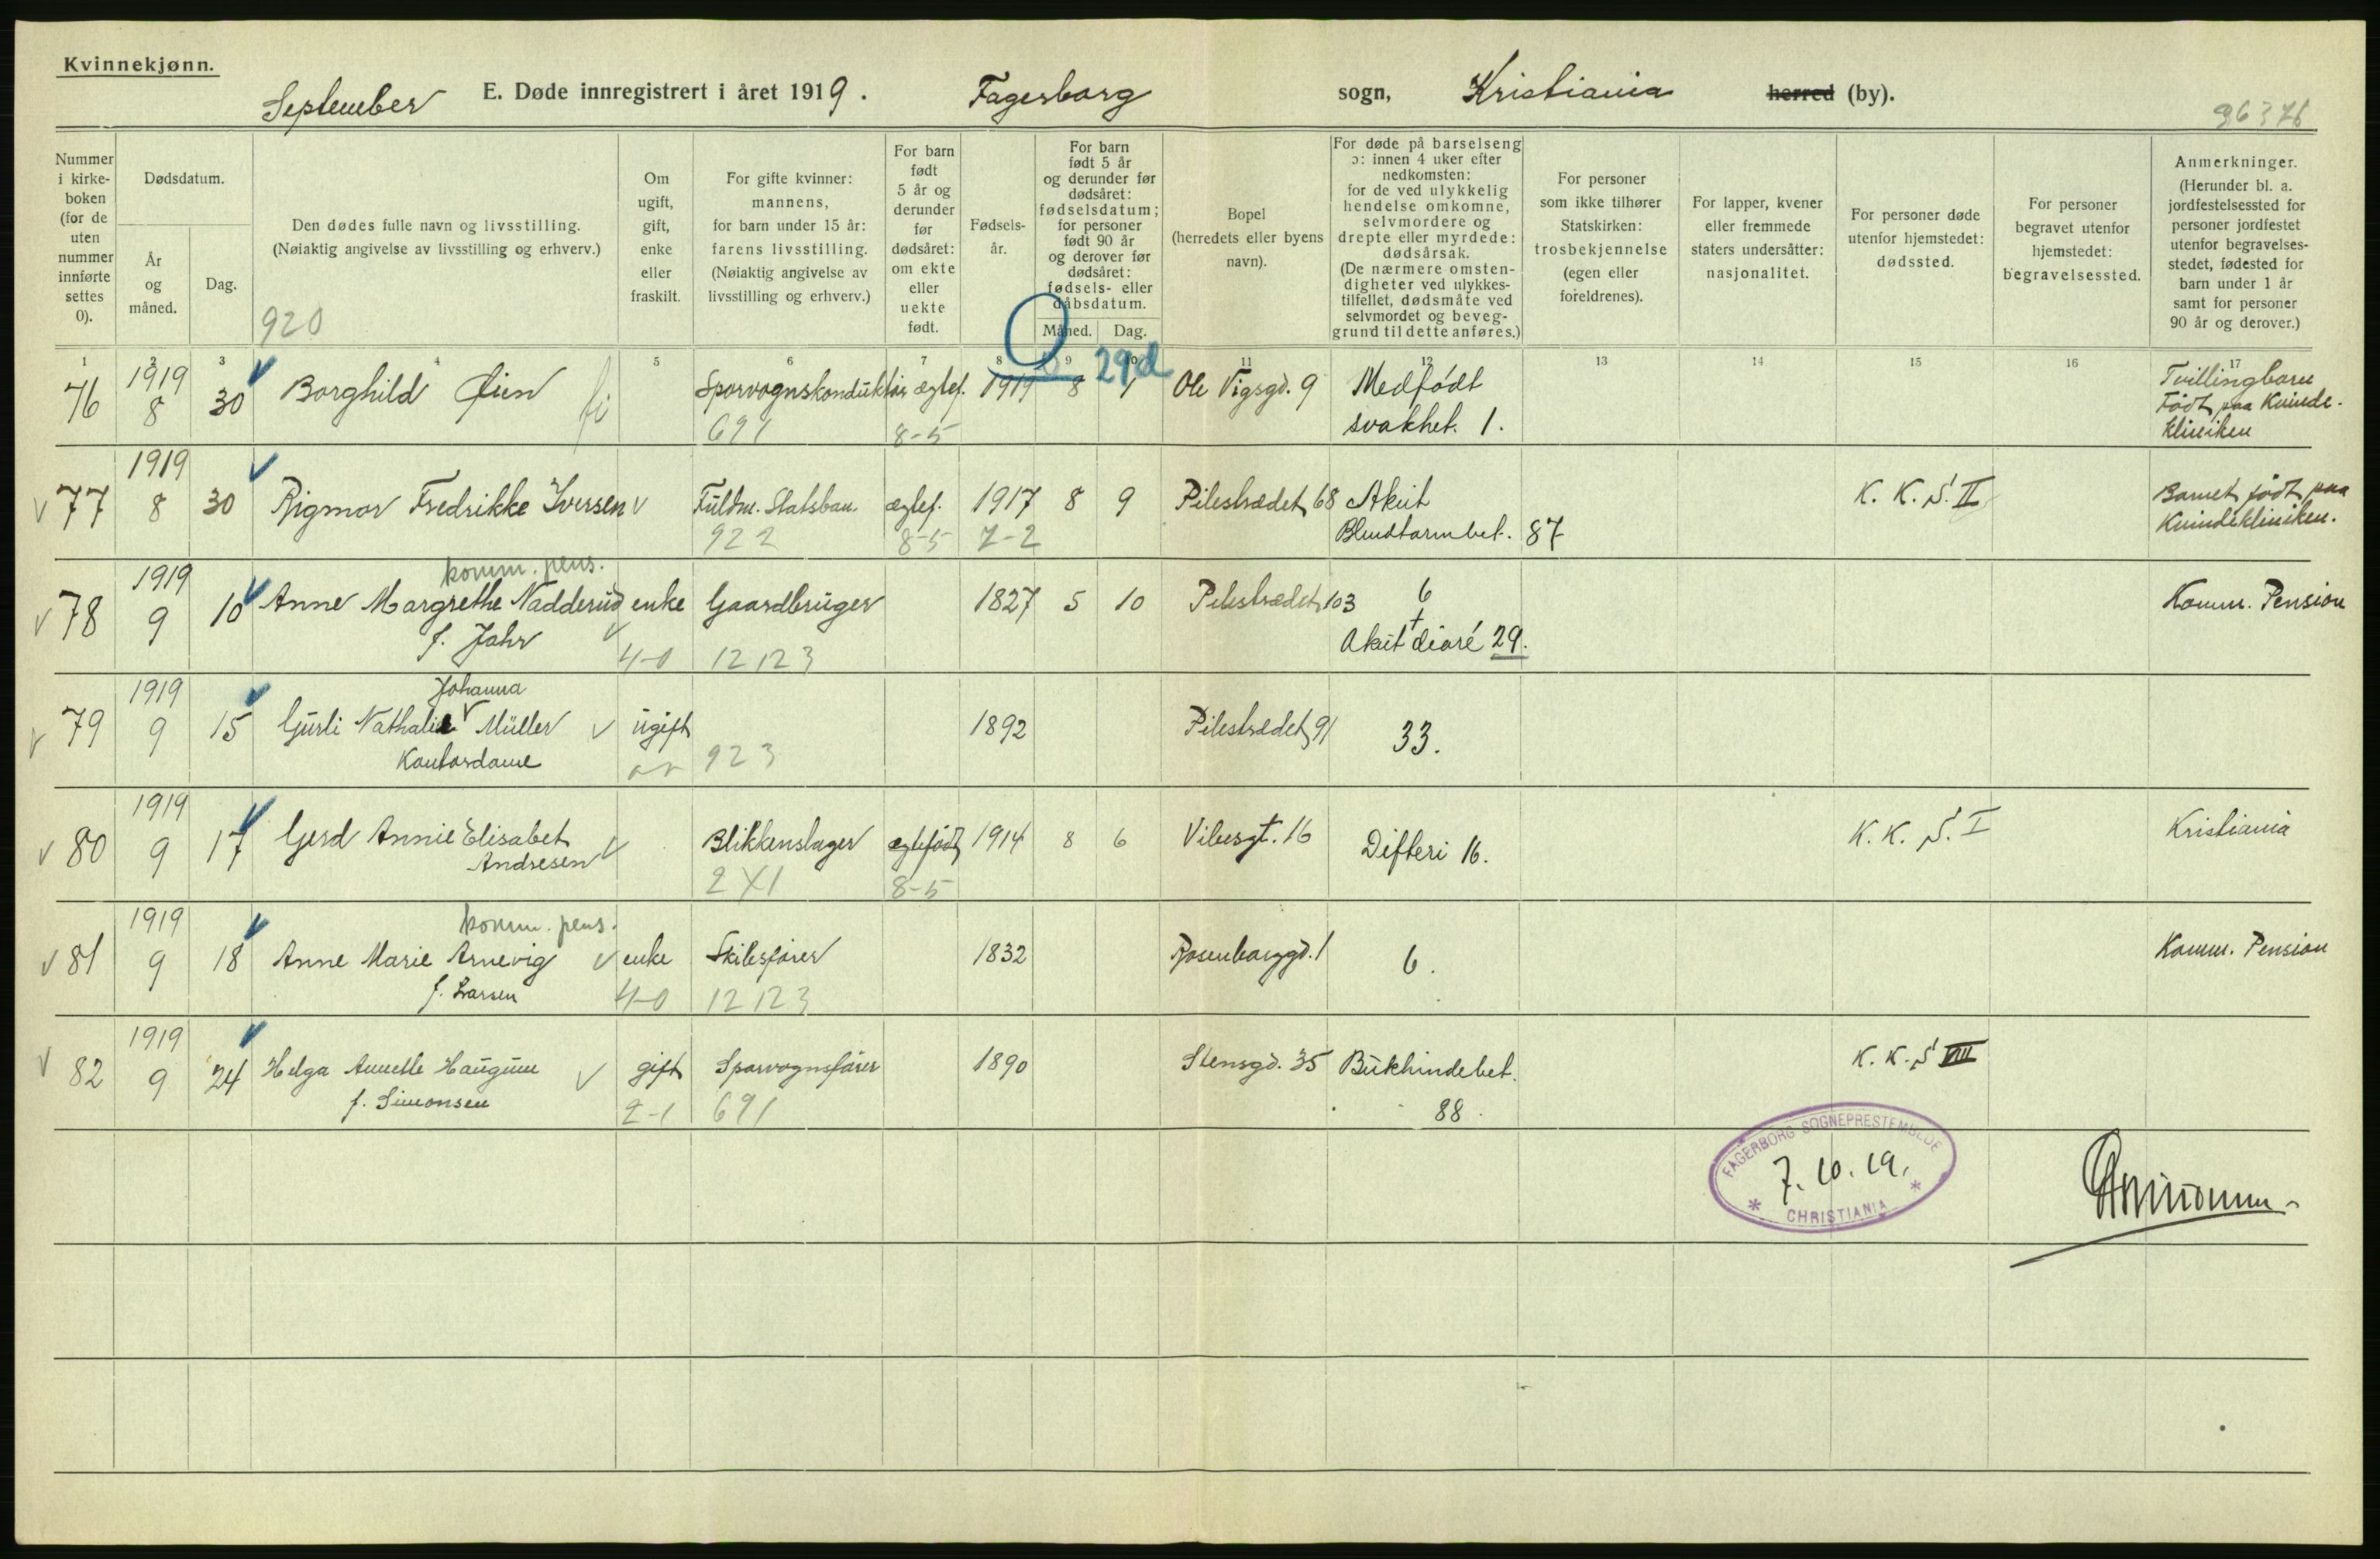 Kvinnekjønn.
September E. Døde innregistrert i året 1919. Fagerborg sogn, Kristiania herred (by).
96376
Nummer i kirke- boken (for de uten nummer innførte settes 0).
Dødsdatum.
År og måned.
Dag.
Den dødes fulle navn og livsstilling.
(Nøiaktig angivelse av livsstilling og erhverv.)
920
Om ugift, gift, enke eller fraskilt.
For gifte kvinner: mannens, for barn under 15 år: farens livsstilling. (Nøiaktig angivelse av livsstilling og erhverv.)
For barn født 5 år og derunder før dødsåret: om ekte eller uekte født.
Fødsels- år.
For barn født 5 år og derunder før dødsåret: fødselsdatum; for personer født 90 år og derover før dødsåret: fødsels- eller dåbsdatum.
Måned. Dag.
Bopel (herredets eller byens navn).
For døde på barselseng ɔ: innen 4 uker efter nedkomsten: for de ved ulykkelig hendelse omkomne, selvmordere og drepte eller myrdede: dødsårsak. (De nærmere omsten- digheter ved ulykkes- tilfellet, dødsmåte ved selvmordet og beveg- grund til dette anføres.)
For personer som ikke tilhører Statskirken: trosbekjennelse (egen eller foreldrenes).
For lapper, kvener eller fremmede staters undersåtter: nasjonalitet.
For personer døde utenfor hjemstedet: dødssted.
For personer begravet utenfor hjemstedet: begravelsessted.
Anmerkninger. (Herunder bl. a. jordfestelsessted for personer jordfestet utenfor begravelses- stedet, fødested for barn under 1 år samt for personer 90 år og derover.)
1 2 3 4 5 6 7 8 9 10 11 12 13 14 15 16 17
76 1919 8 30 Borghild Øien Sporvognskonduktør ægtef. 1919 8 1 29 d Ole Vigsgd. 9 Medfødt svakhet. 1. Tvillingbarn Født paa Kvinde- kliniken
691 8-5
77 1919 8 30 Rigmor Fredrikke Iversen Fuldm. Statsban. ægtef. 1917 8 9 Pilestrædet 68 Akut Blindtarmbet. 87 K. K. S. II Barnet født paa Kvindekliniken.
922 8-5 2-2
komm. pens.
78 1919 9 10 Anne Margrethe Nadderud f. Jahr enke Gaardbruger 1827 5 10 Pilestrædet 103 6 + Akut diaré 29. Komm. Pension
4-0 12123
79 1919 9 15 Gurli Nathalie Johanna Müller Kontordame ugift 1892 Pilestrædet 91 33.
923
80 1919 9 17 Gerd Annie Elisabet Andresen Blikkenslager ægtefødt 1914 8 6 Vibesgt. 16 Difteri 16. K. K. S. I Kristiania
2X1 8-5
komm. pens.
81 1919 9 18 Anne Marie Arnevig f. Larsen enke Skibsfører 1832 Rosenborggd. 1 6. Komm. Pension
4-0 12123
82 1919 9 24 Helga Annette Haugum f. Simonsen gift Sporvognsfører 1890 Stensgd. 35 Bukhindebet. 88. K. K. S VIII
2-1 691
FAGERBORG SOGNEPRESTEMBEDE
7.10.19.
* CHRISTIANIA *